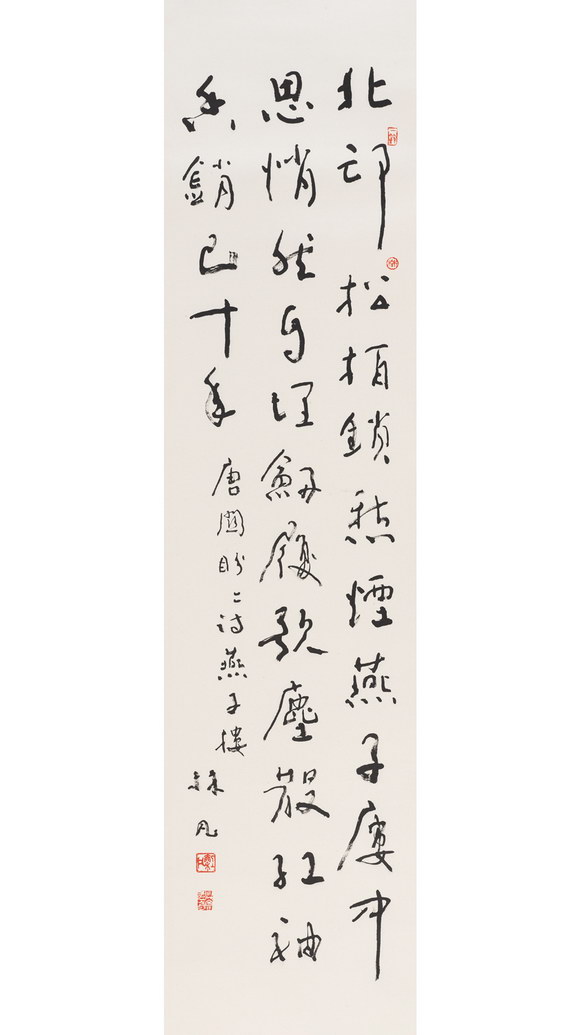 北邙松栢鎖愁煙燕子廔中
思悄然自埋劒履歌塵散紅袖
香銷已十年
唐關盼〻詩燕子樓
林凡